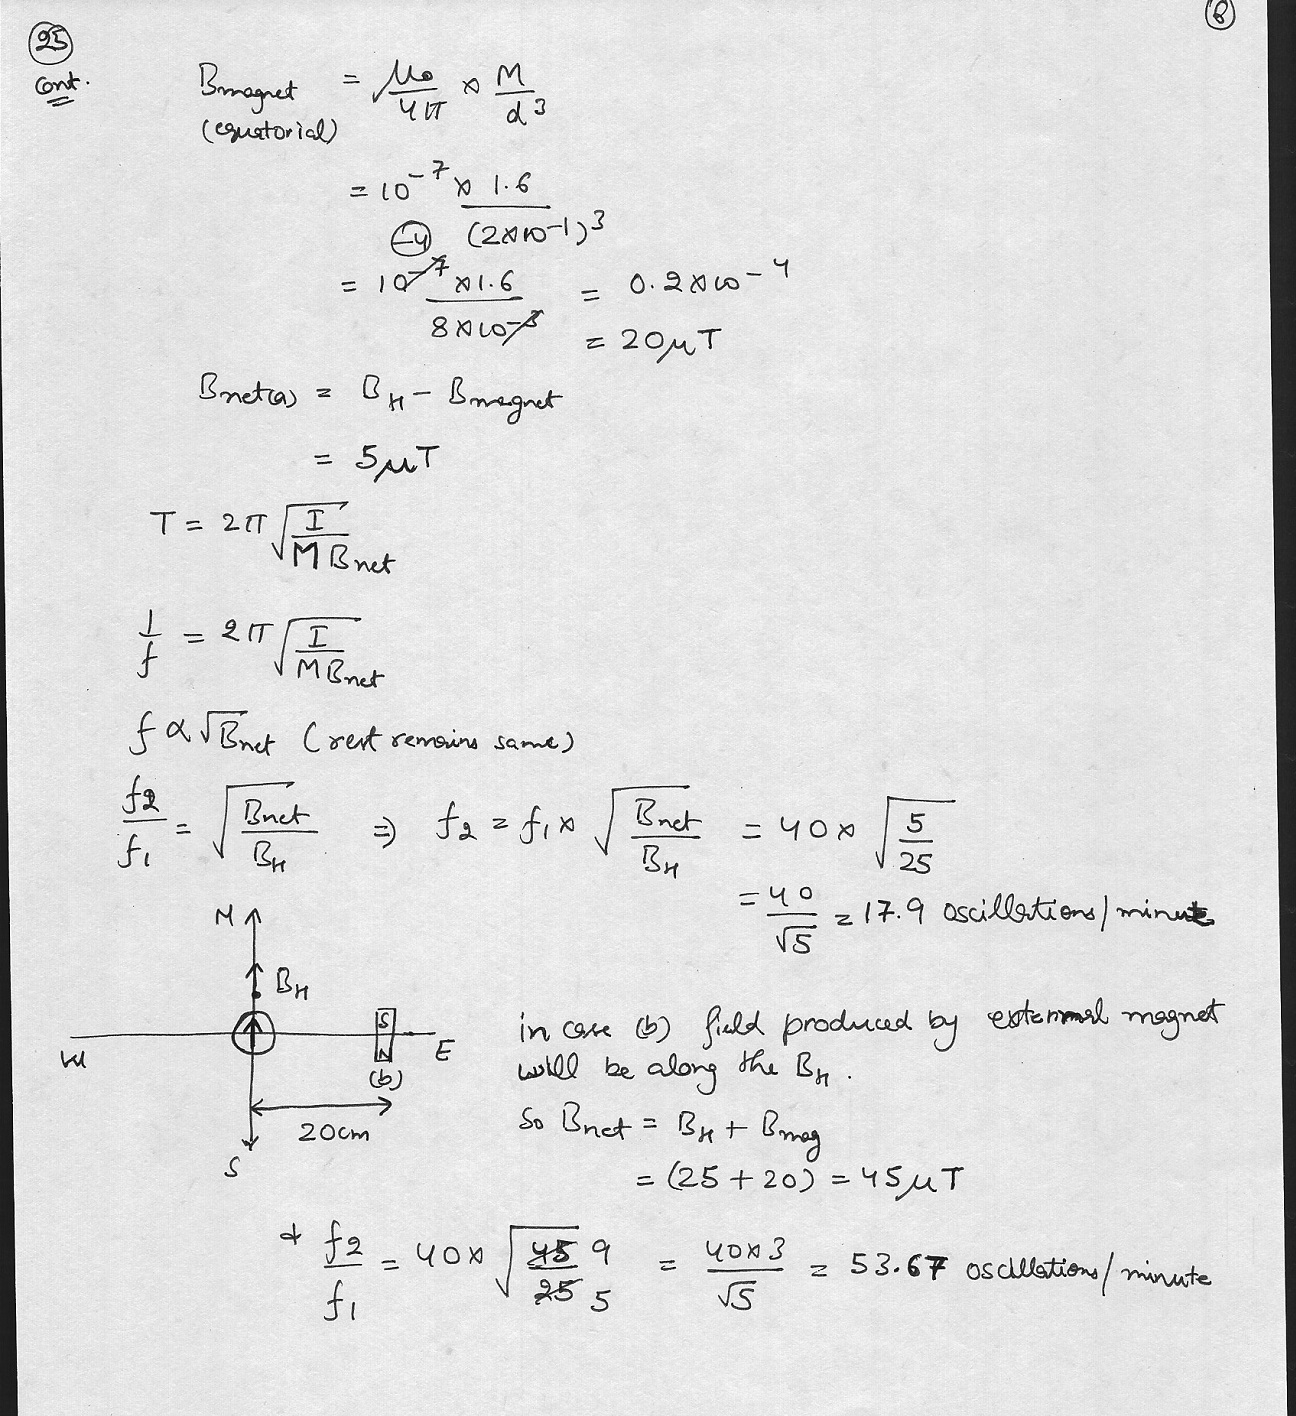 25 8
cont.
Bmagnet = μ0/4π × M/d³
(equatorial)
= 10⁻⁷ × 1.6/(2×10-1)³
-4
= 10⁻⁷ × 1.6/8×10-3 = 0.2×10⁻⁴
= 20μT
Bnet(a) = BH − Bmagnet
= 5μT
T = 2π √(I/M Bnet)
1/f = 2π √(I/M Bnet)
f ∝ √Bnet (rest remains same)
f2/f1 = √(Bnet/BH) ⇒ f2 = f1 × √(Bnet/BH) = 40 × √(5/25)
= 40/√5 = 17.9 oscillations/minute
N
BH
S
W E
N
(b)
20cm
S
in case (b) field produced by external magnet
will be along the BH.
So Bnet = BH + Bmag
= (25 + 20) = 45μT
& f2/f1 = 40 × √(45/25) 9 5 = 40×3/√5 = 53.67 oscillations/minute